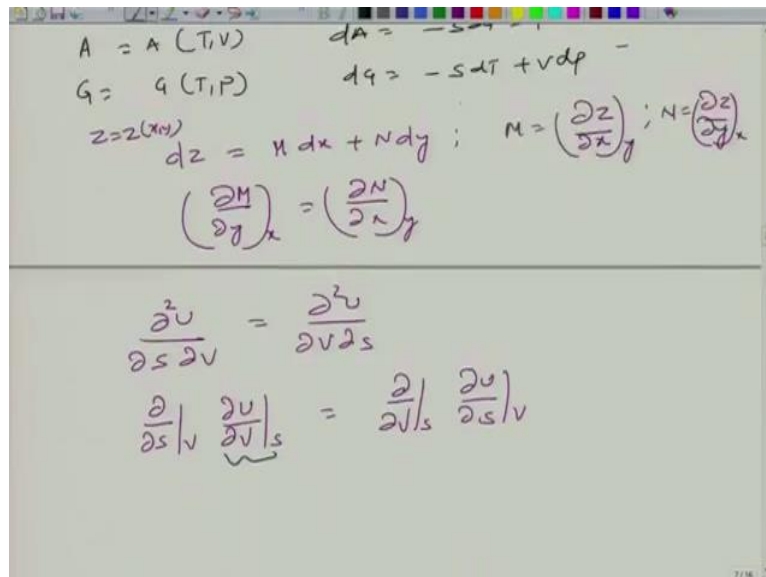 A = A (T,V) dA = - SdT -
G = G (T,P) dG = - SdT + Vdp
z = z(x,y)
dz = M dx + N dy ; M = (∂z/∂x)_y ; N = (∂z/∂y)_x
(∂M/∂y)_x = (∂N/∂x)_y
∂²U/∂S∂V = ∂²U/∂V∂S
∂/∂S|_V ∂U/∂V|_S = ∂/∂V|_S ∂U/∂S|_V